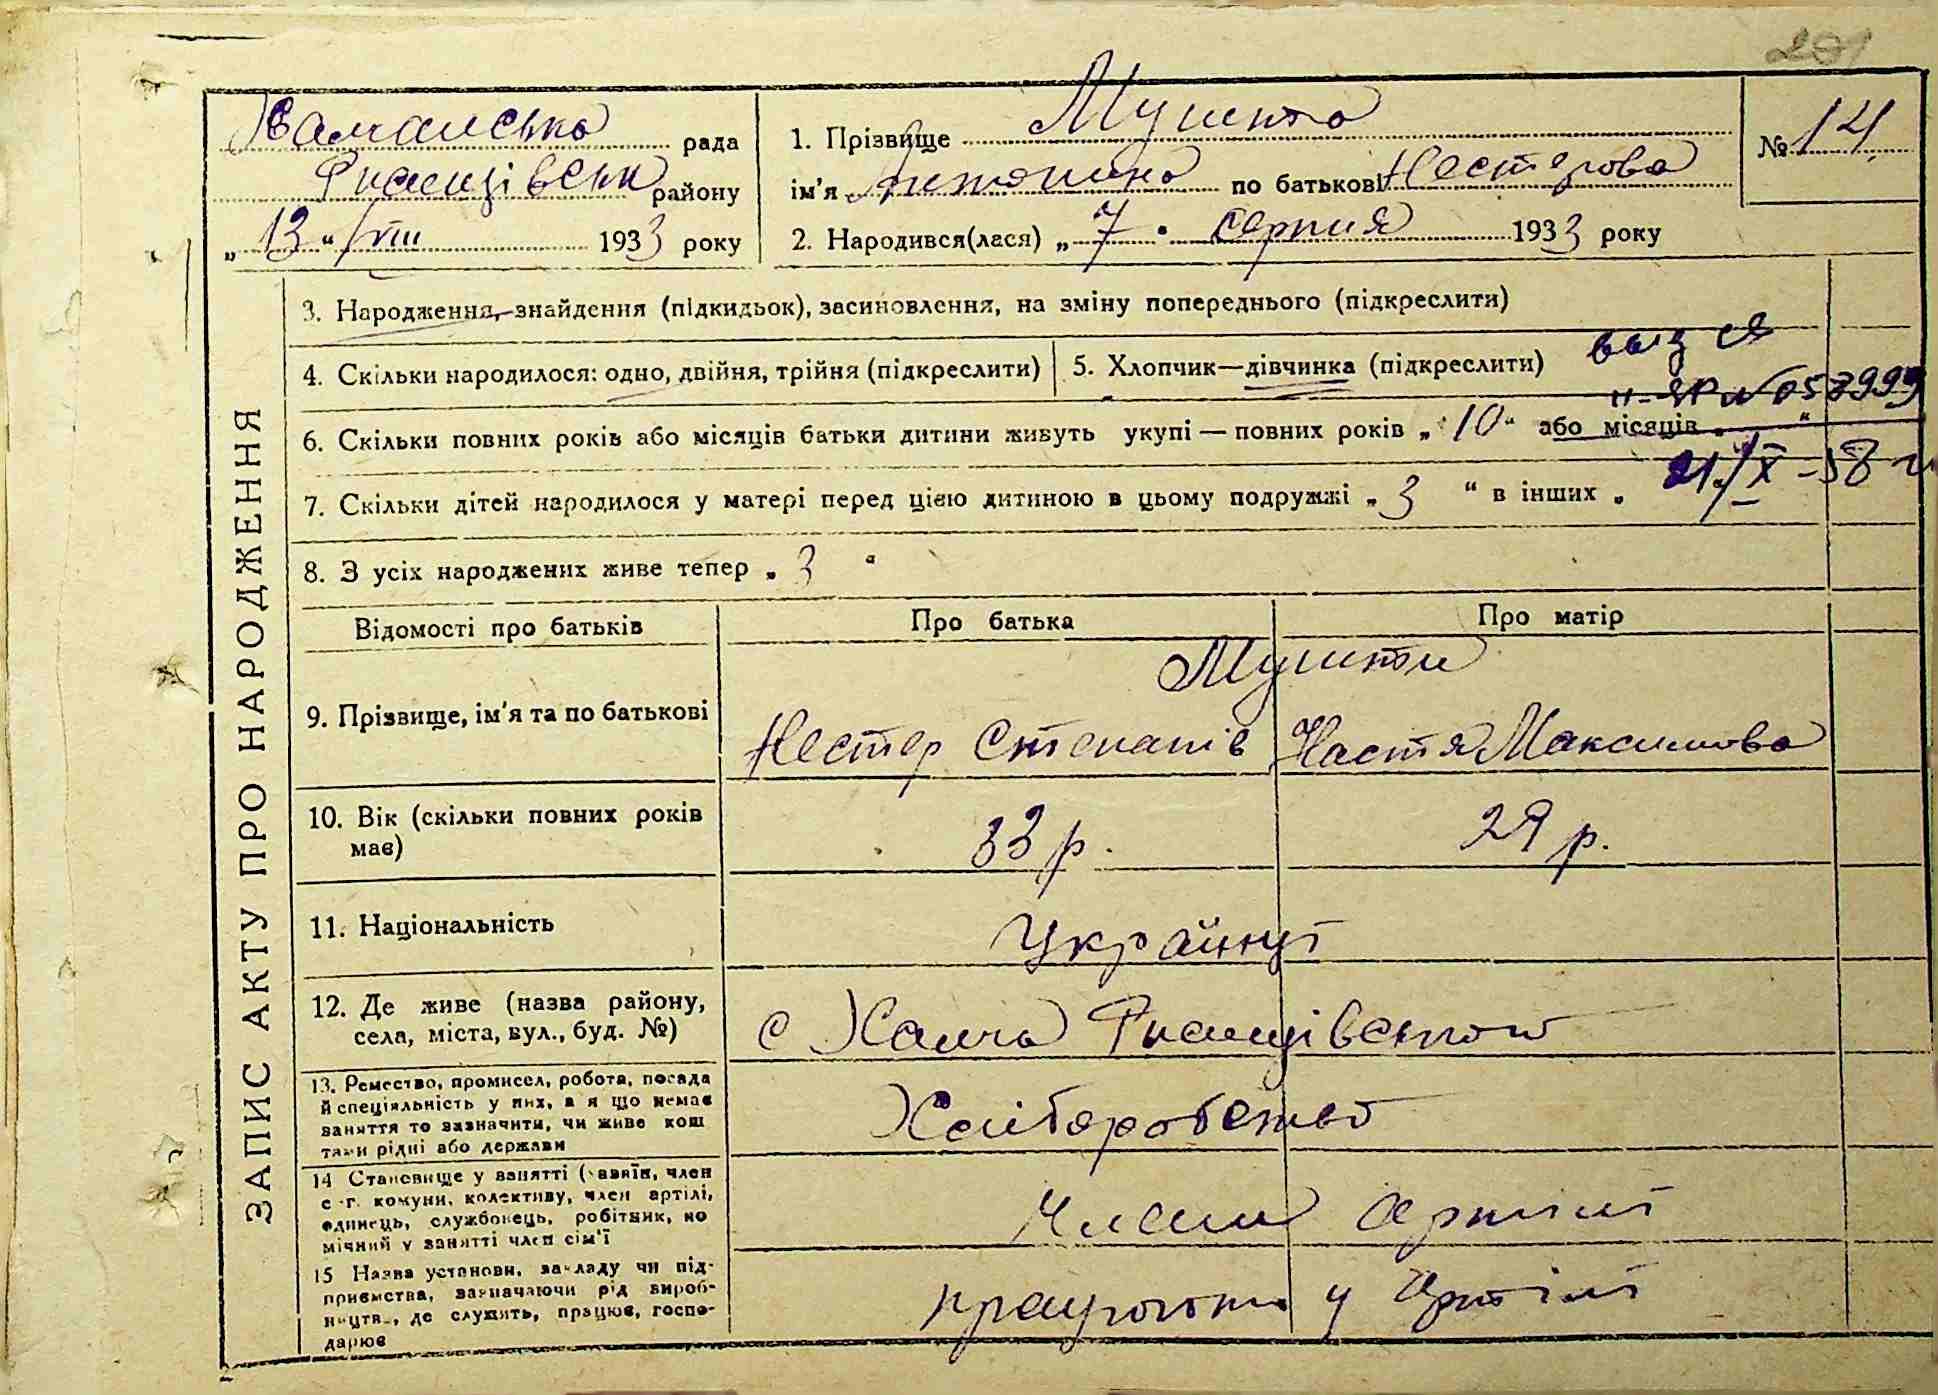 201
Халчанська рада
Ржищівськ району
„13“ VIII 1933 року
1. Прізвище Мушта
ім'я Антонина по батькові Нестерова
2. Народився(лася) „7“ серпня 1933 року
№ 14
ЗАПИС АКТУ ПРО НАРОДЖЕННЯ
3. Народження, знайдення (підкидьок), засиновлення, на зміну попереднього (підкреслити)
4. Скільки народилося: одно, двійня, трійня (підкреслити)
5. Хлопчик—дівчинка (підкреслити)
6. Скільки повних років або місяців батьки дитини живуть укупі — повних років „10“ або місяців „ “
21/IX-58 г
7. Скільки дітей народилося у матері перед цією дитиною в цьому подружжі „3“ в інших „
8. З усіх народжених живе тепер „3“
Відомості про батьків Про батька Про матір
Мушти
9. Прізвище, ім'я та по батькові Нестер Степанів Настя Максимова
10. Вік (скільки повних років має) 33 р. 29 р.
11. Національність Українці
12. Де живе (назва району, села, міста, вул., буд. №) с Халча Ржищівського
13. Ремество, промисел, робота, посада й спеціяльність у них, а я що немає заняття то зазначити, чи живе кош тами рідні або держави Хліборобство
14 Становище у занятті (хазяїн, член с.-г. комуни, колективу, член артілі, одинець, службовець, робітник, по мічний у занятті член сім'ї Члени артілі
15 Назва установи, закладу чи під-приємства, зазначаючи рід вироб-ництв., де служить, працює, госпо-дарює працюють у артілі